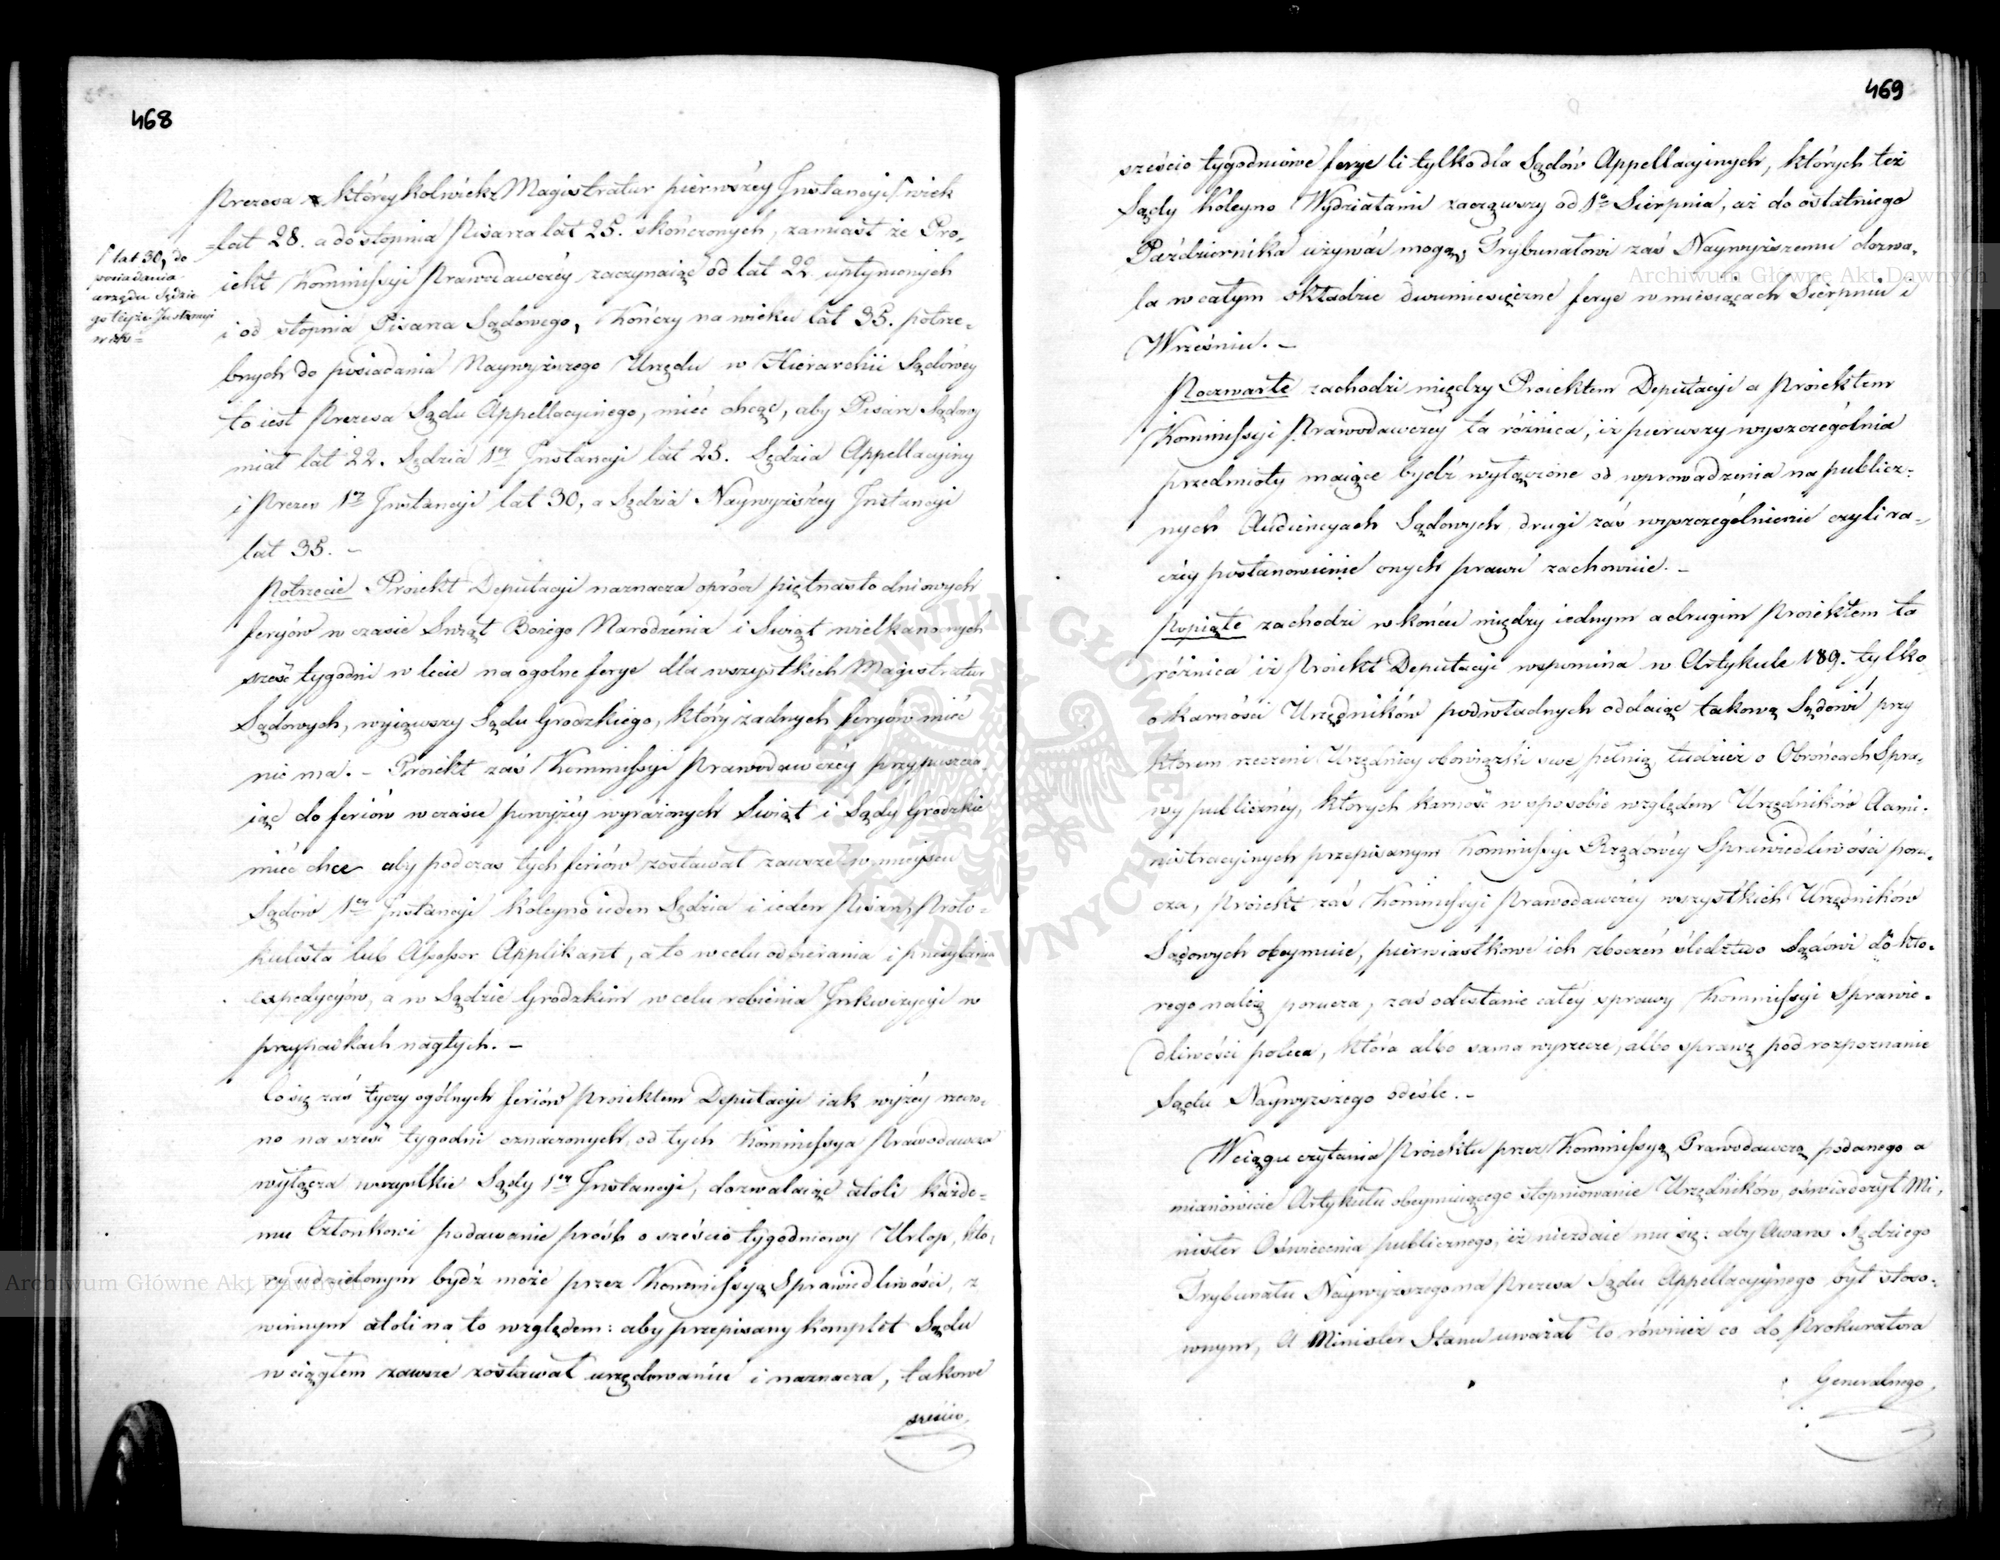 468
Prezesa którejkolwiek Magistratur pierwszéy Instancyi ⌈ wiek
lat 28. a do stopnia Pisarza lat 25. skończonych, zamiast że Pro-
iekt Kommissyi Prawodawczéy zaczynaiąc od lat 22 upłynionych
i od stopnia Pisarza Sądowego, kończy na wieku lat 35. potrze-
bnych do posiadania Naywyższego Urzędu w Hierarchii Sądowéy
to iest Prezesa Sądu Appellacyinego, mieć chcąc, aby Pisarz Sądowy
miał lat 22. Sędzia 1éy Instancyi lat 25. Sędzia Appellacyiny
i Prezes 1éy Instancyi lat 30, a Sędzia Naywyższéy Instancyi
lat 35. –
⌈ lat 30, do
posiadania
urzędu Sędzie
go teyże Instancyi
wiek
Potrzecie Proiekt Deputacyi naznacza oprócz piętnastodniowych
feryów w czasie Swiąt Bożego Narodzenia i Swiąt wielkanocnych
sześć tygodni w lecie na ogolne ferye dla wszystkich Magistratur
Sądowych, wyiąwszy Sądu Grodzkiego, który żadnych feryów mieć
nie ma. – Proiekt zaś Kommissyi Prawodawczéy przypuszcza
iąc do feriów w czasie powyżéy wyrażonych Swiąt i Sądy Grodzkie
mieć chce aby podczas tych feriów zostawał zawsze w miejscu
Sądów 1éy Instancyi koleyno ieden Sędzia i ieden Pisarz, Proto-
kulista lub Assessor Applikant, a to w celu odbierania i przesyłania
expedycyów, a w Sądzie Grodzkim w celu robienia Inkwizycyi w
przypadkach nagłych. –
Co się zaś tyczy ogólnych feriów Proiektem Deputacyi iak wyżéy rzeczo-
no na sześć tygodni oznaczonych, od tych Kommissya Prawodawcza
wyłącza wszystkie Sądy 1éy Instancyi, dozwalaiąc atoli każde-
mu Członkowi podawanie próśb o sześcio tygodniowy Urlop, któ-
ry udzielonym bydź może przez Kommissyą Sprawiedliwości, z
winnym atoli na to względem: aby przepisany komplet Sądu
w ciągłem zawsze zostawał urzędowaniu i naznacza, takowe
sześcio,
469
sześcio tygodniowe ferye li tylko dla Sądów Appellacyinych, których też
Sądy koleyno Wydziałami zacząwszy od 1o Sierpnia, aż do ostatniego
Października używać mogą; Trybunałowi zaś Naywyższemu dozwa-
la w całym składzie dwumiesięczne ferye w miesiącach Sierpniu i
Wrześniu. –
Poczwarte zachodzi między Proiektem Deputacyi a Proiektem
Kommissyi Prawodawczéy ta różnica, iż pierwszy wyszczególnia
przedmioty maiące bydź wyłączone od wprowadzenia na publicz-
nych Audiencyach Sądowych, drugi zaś wyszczególnienie czyli ra-
czéy postanowienie onych prawu zachowuie. –
Popiąte zachodzi w końcu między iednym a drugim Proiektem ta
różnica iż Proiekt Deputacyi wspomina w Artykule 189. tylko
o karności Urzędników podwładnych oddaiąc takową Sądowi przy
którem rzeczeni Urzędnicy obowiązki swe pełnią, tudzież o Obrońcach Spra-
wy publicznéy, których karność w sposobie względem Urzędników Admi-
nistracyinych przepisanym Kommissyi Rządowéy Sprawiedliwości poru-
cza, Proiekt zaś Kommissyi Prawodawczéy wszystkich Urzędników
Sądowych obeymuie, pierwiastkowe ich zboczeń śledztwo Sądowi do któ-
rego należą porucza, zaś odesłanie całéy sprawy Kommissyi Sprawie-
dliwości poleca, która albo sama wyrzecze, albo sprawę pod rozpoznanie
Sądu Naywyższego odeśle. –
W ciągu czytania Proiektu przez Kommissyą Prawodawczą podanego a
mianowicie Artykułu obeymuiącego stopniowanie Urzędników, oświadczył Mi-
nister Oświecenia publicznego, iż niezdaie mu się: aby Awans Sędziego
Trybunału Naywyższego na Prezesa Sądu Appellacyinego był stoso-
wnym, A Minister Stanu uważał to również co do Prokuratora
Generalnego,
Archiwum Główne Akt Dawnych
Archiwum Główne Akt Dawnych
ARCHIWUM GŁÓWNE AKT DAWNYCH